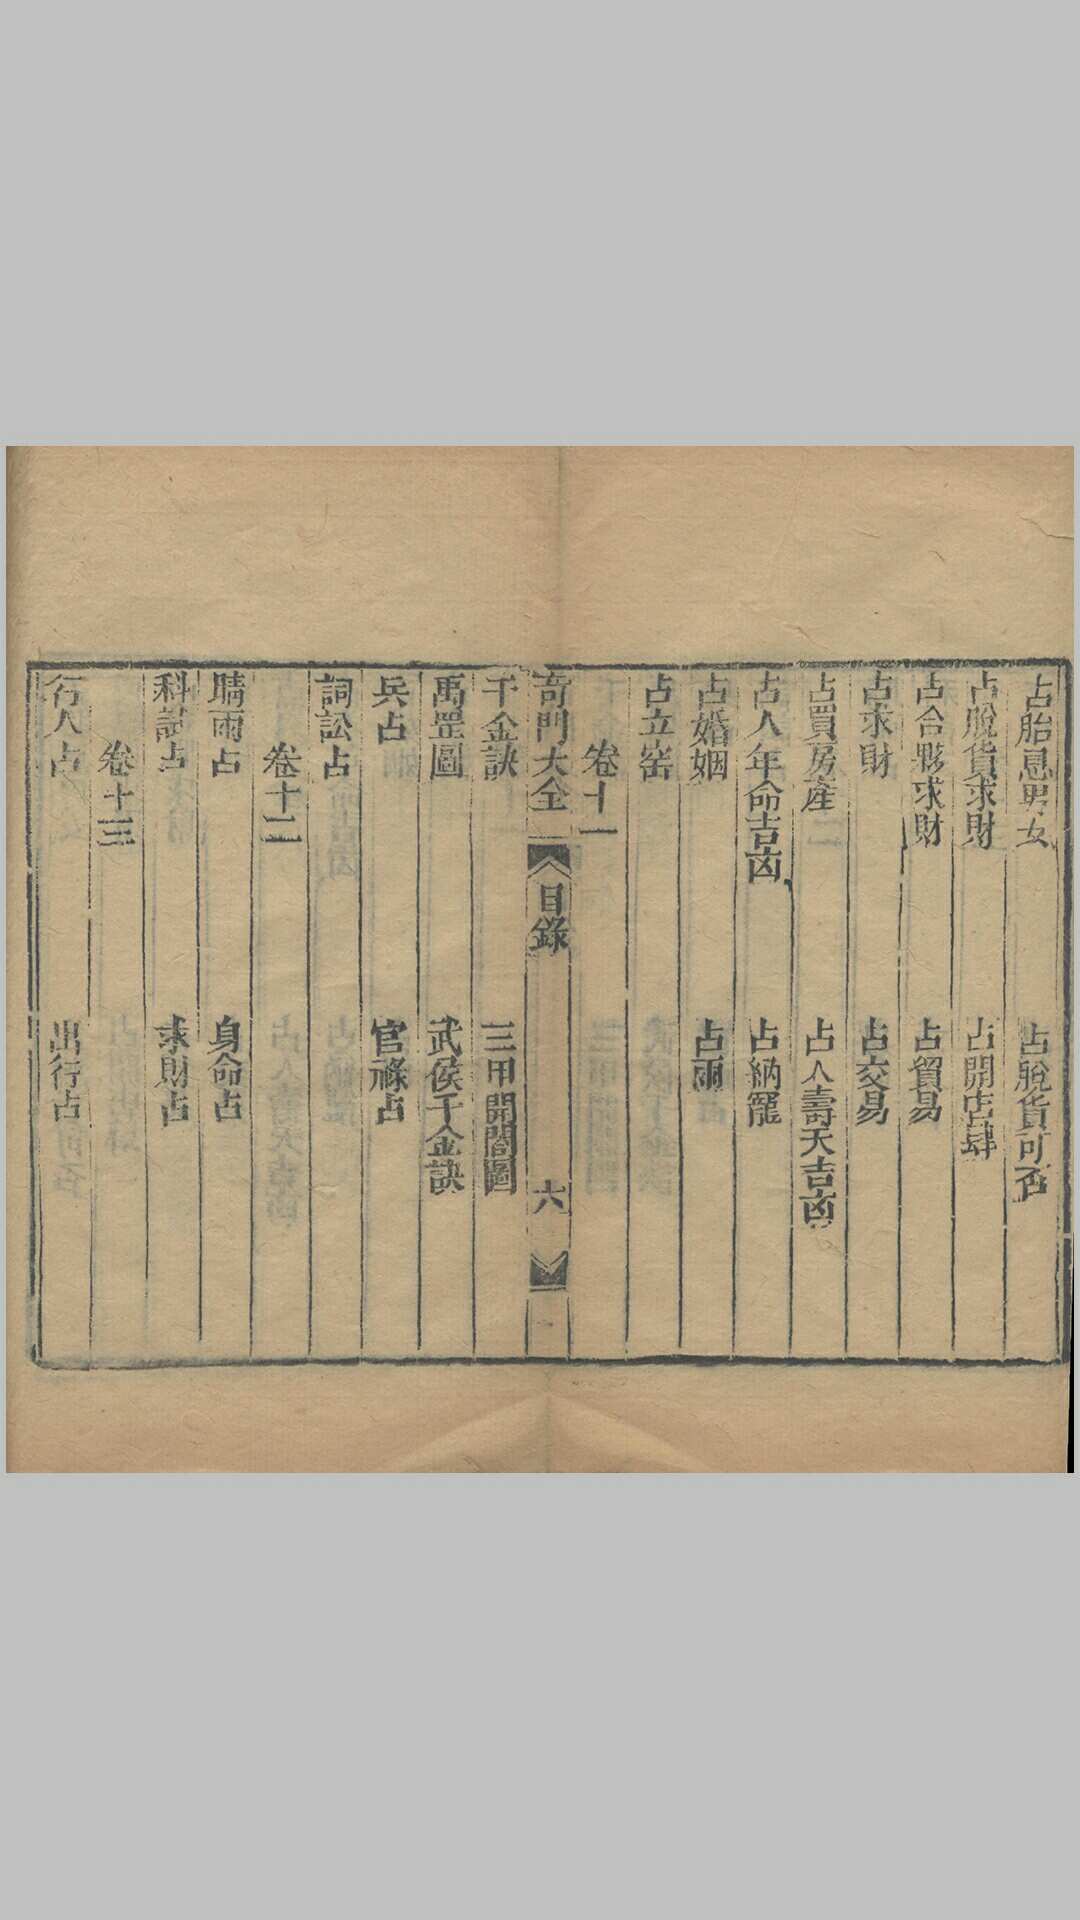 占胎息男女　占脫貨可否
占脫貨求財　占開店肆
占合夥求財　占貿易
占求財　占交易
占買房產　占人壽夭吉凶
占人年命吉凶　占納寵
占婚姻　占雨
占立窑
卷十一
奇門大全　目錄　六
千金訣　三甲開闔圖
禹罡圖　武侯千金訣
兵占　官祿占
詞訟占
卷十二
晴雨占　身命占
科試占　求財占
卷十三
行人占　出行占